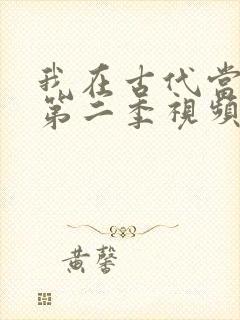 我在古代当
第二季視頻
黄馨